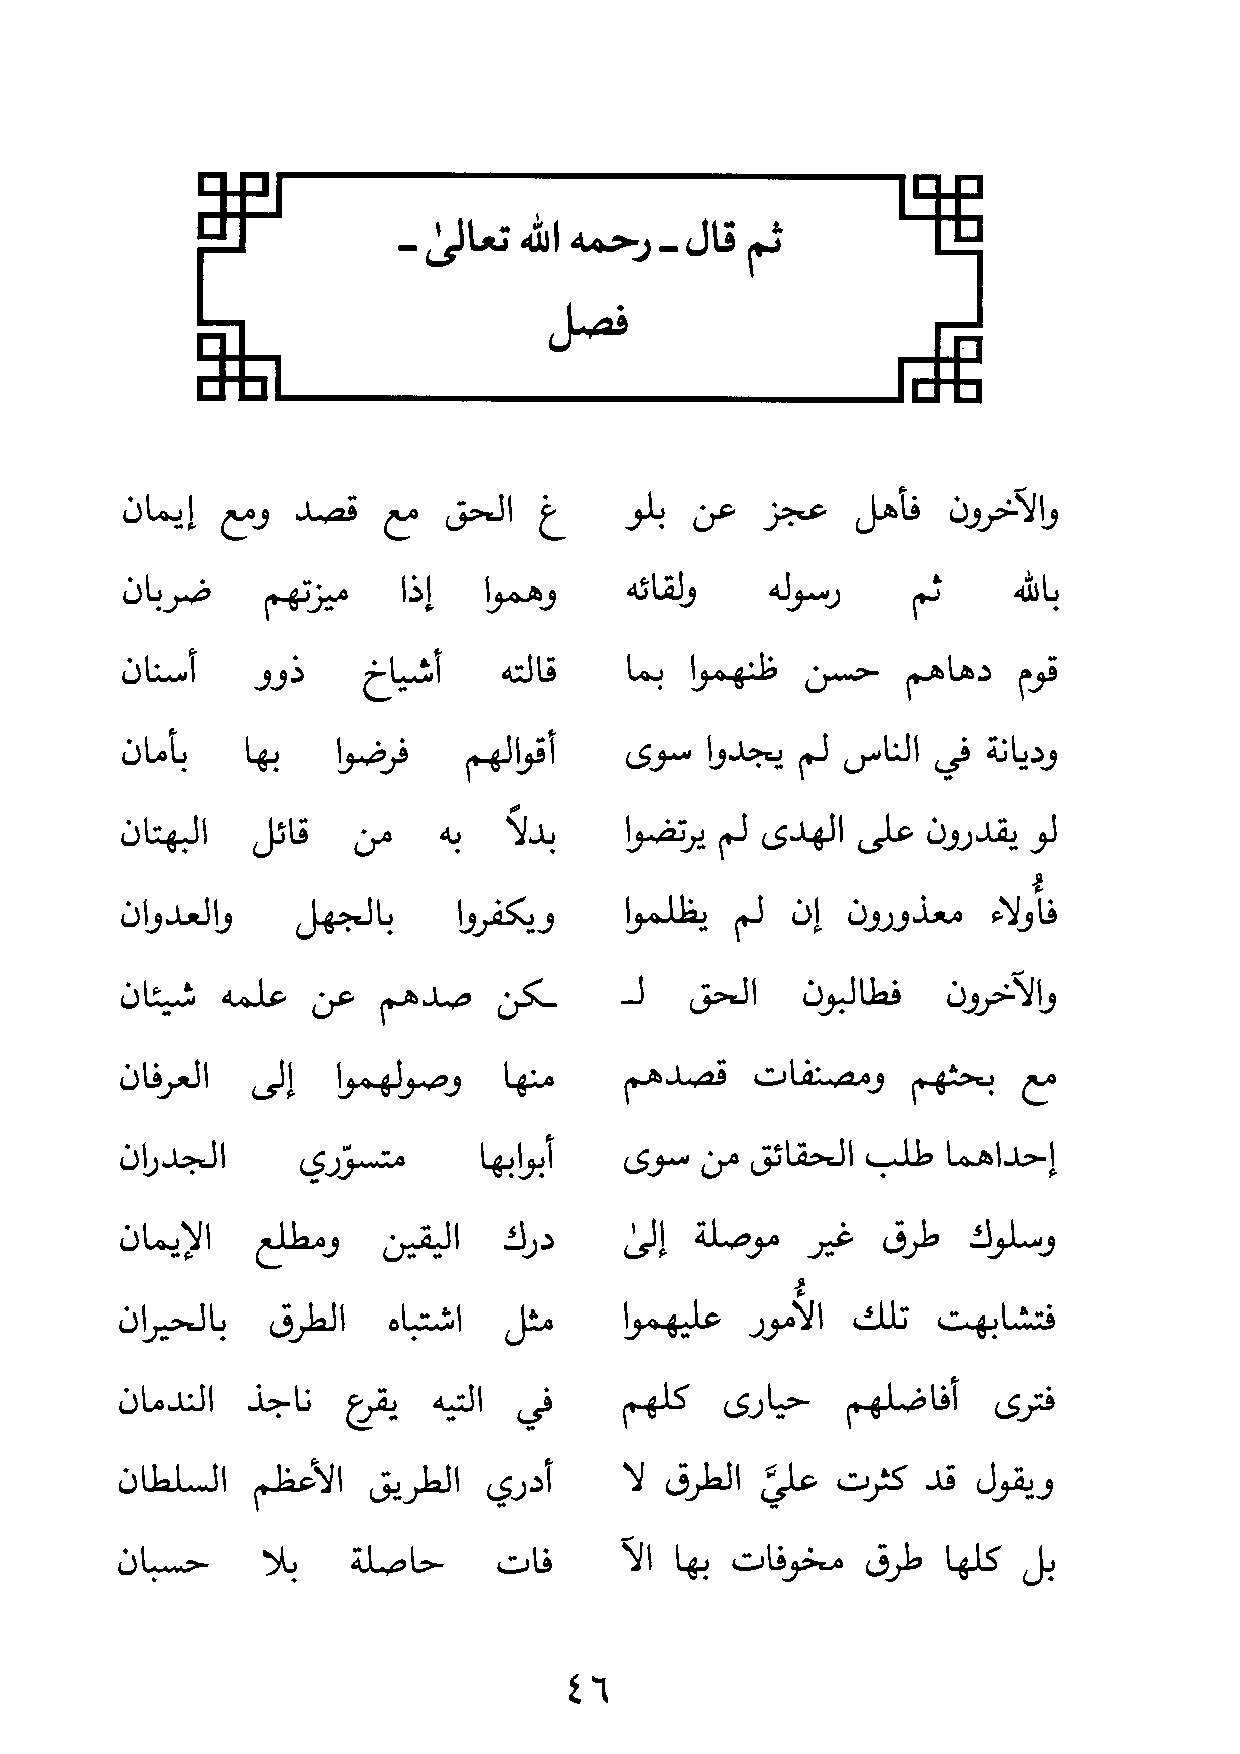 ثم قال ـ رحمه الله تعالىٰ ـ
فصل
والآخرون فأهل عجز عن بلو غ الحق مع قصد ومع إيمان
بالله ثم رسوله ولقائه وهموا إذا ميزتهم ضربان
قوم دهاهم حسن ظنهموا بما قالته أشياخ ذوو أسنان
وديانة في الناس لم يجدوا سوى أقوالهم فرضوا بها بأمان
لو يقدرون على الهدى لم يرتضوا بدلاً به من قائل البهتان
فأُولاء معذورون إن لم يظلموا ويكفروا بالجهل والعدوان
والآخرون فطالبون الحق لـ ـكن صدهم عن علمه شيئان
مع بحثهم ومصنفات قصدهم منها وصولهموا إلى العرفان
إحداهما طلب الحقائق من سوى أبوابها متسوّري الجدران
وسلوك طرق غير موصلة إلىٰ درك اليقين ومطلع الإيمان
فتشابهت تلك الأُمور عليهموا مثل اشتباه الطرق بالحيران
فترى أفاضلهم حيارى كلهم في التيه يقرع ناجذ الندمان
ويقول قد كثرت عليَّ الطرق لا أدري الطريق الأعظم السلطان
بل كلها طرق مخوفات بها الآ فات حاصلة بلا حسبان
٤٦